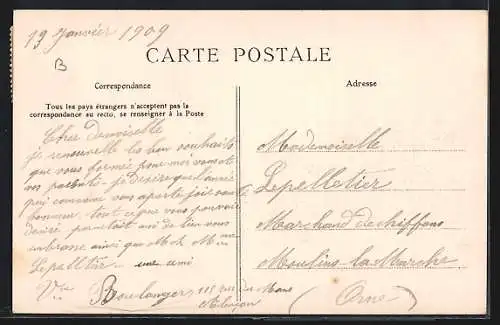 19 Janvier 1909
B
CARTE POSTALE
Correspondance
Adresse
Tous les pays étrangers n'acceptent pas la
correspondance au recto, se renseigner à la Poste
Cher Demoiselle
je renouvelle les bon souhaits
que vous formée pour moi vous et
vos parents - je desire que l'année
qui commence vous aporte joie
bonneur tout ce que vous pouvoir
desiré
embrasse ainsi que Mr Mme
Lepelletier une ami
Vve Boulanger 118 rue du Mans
Alençon
Mademoiselle
Lepelletier
Marchand de chiffons
Moulins la Marche
(Orne)